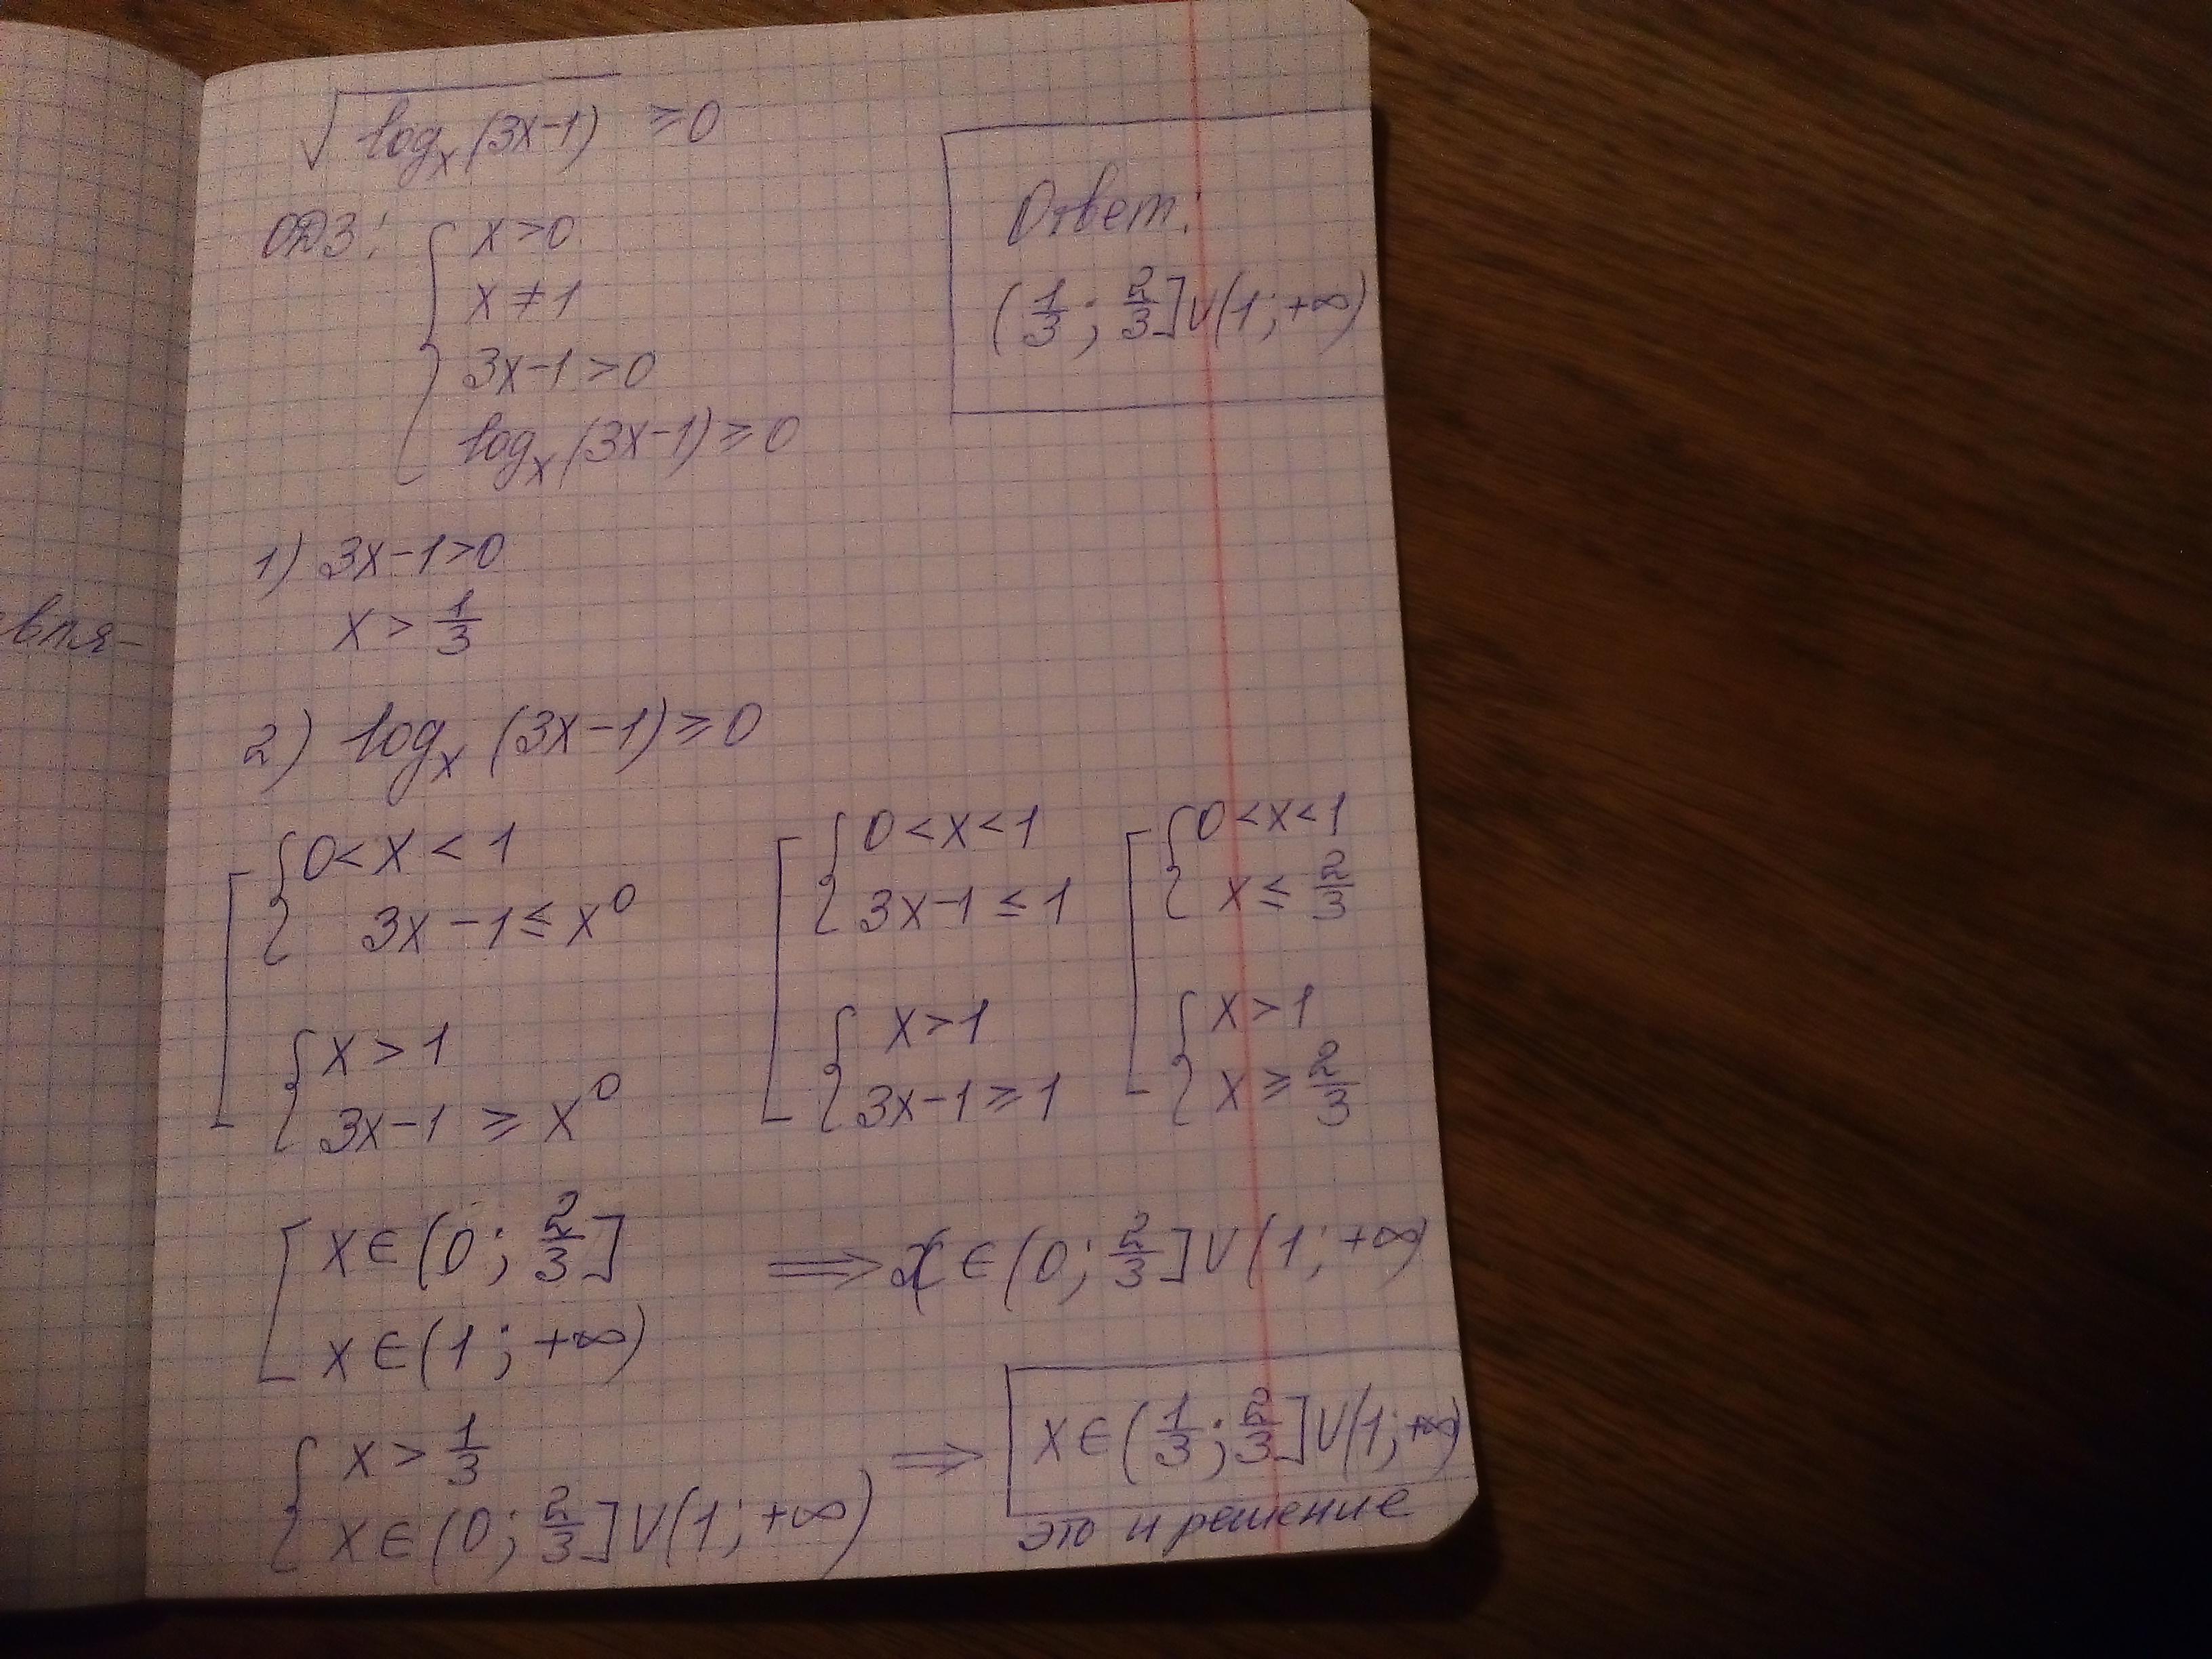 √log_x(3x-1) ≥0
ОДЗ: { x>0
x≠1
3x-1>0
log_x(3x-1)≥0
Ответ:
(1/3; 2/3]∪(1;+∞)
1) 3x-1>0
x > 1/3
2) log_x (3x-1)≥0
[ { 0<x<1
3x-1≤x^0
{ x>1
3x-1 ≥ x^0
[ { 0<x<1
3x-1≤1
{ x>1
3x-1≥1
[ { 0<x<1
x≤2/3
{ x>1
x≥2/3
[ x∈(0; 2/3]
x∈(1;+∞)
⟹ x∈(0; 2/3]∪(1;+∞)
{ x>1/3
x∈(0; 2/3]∪(1;+∞)
⟹ x∈(1/3; 2/3]∪(1;+∞)
это и решение
вля-